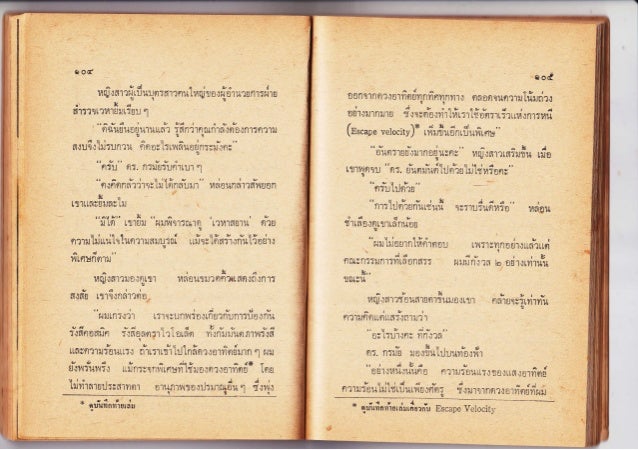 ๑๐๔
หญิงสาวผู้เป็นบุตรสาวคนใหญ่ของผู้อำนวยการฝ่าย
สำรวจเวหายิ้มเรียบ ๆ
"ดิฉันยืนอยู่นานแล้ว รู้สึกว่าคุณกำลังต้องการความ
สงบจึงไม่รบกวน คิดอะไรเพลินอยู่กระมังคะ"
"ครับ" ดร. กรมัยรับคำเบา ๆ
"คงคิดกลัวว่าจะไม่ได้กลับมา" หล่อนกล่าวสัพยอก
เขาและยิ้มละไม
"มิได้" เขายิ้ม "ผมพิจารณาดู 'เวหาสยาน' ด้วย
ความไม่แน่ใจในความสมบูรณ์ แม้จะได้สร้างกันไว้อย่าง
พิเศษก็ตาม"
หญิงสาวมองดูเขา หล่อนขมวดคิ้วแสดงถึงการ
สงสัย เขาจึงกล่าวต่อ
"ผมเกรงว่า เราจะบกพร่องเกี่ยวกับการป้องกัน
รังสีคอสมิค รังสีอุลตราไวโอเล็ต ทั้งกัมมันตภาพรังสี
และความร้อนแรง ถ้าเราเข้าไปใกล้ดวงอาทิตย์มาก ๆ ผม
ยังพรั่นพรึง แม้กระจกพิเศษที่ใช้มองดวงอาทิตย์ โดย
ไม่ทำลายประสาทตา อานุภาพของปรมาณูอื่น ๆ ซึ่งพุ่ง
* ดูบันทึกท้ายเล่ม
๑๐๕
ออกจากดวงอาทิตย์ทุกทิศทุกทาง ตลอดจนความโน้มถ่วง
อย่างมากมาย ซึ่งจะต้องทำให้เราใช้อัตราเร็วแห่งการหนี
(Escape velocity)* เพิ่มขึ้นอีกเป็นพิเศษ"
"อันตรายยังมากอยู่นะคะ" หญิงสาวเสริมขึ้น เมื่อ
เขาหยุดจบ "ดร. ยันตมนต์ไปด้วยไม่ใช่หรือคะ"
"ครับไปด้วย"
"การไปด้วยกันเช่นนี้ จะราบรื่นดีหรือ" หล่อน
ชำเลืองดูเขาเล็กน้อย
"ผมไม่อยากให้คำตอบ เพราะทุกอย่างแล้วแต่
คณะกรรมการที่เลือกสรร ผมมีกังวล ๒ อย่างเท่านั้น
ขณะนี้"
หญิงสาวช้อนสายตาขึ้นมองเขา คล้ายจะรู้เท่าทัน
ความคิดแต่แสร้งถามว่า
"อะไรบ้างคะ ที่กังวล"
ดร. กรมัย มองขึ้นไปบนท้องฟ้า
"อย่างหนึ่งนั้นคือ ความร้อนแรงของแสงอาทิตย์
ความร้อนไม่ใช่เป็นเพียงศัตรู ซึ่งมาจากดวงอาทิตย์ที่ผม
* ดูบันทึกท้ายเล่มเกี่ยวกับ Escape Velocity